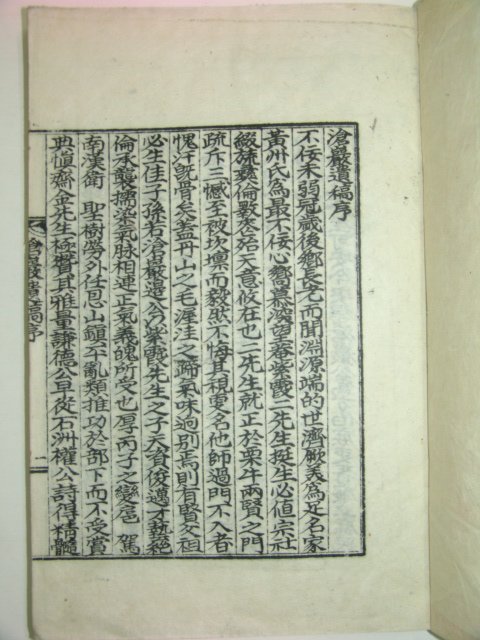 滄巖遺稿序
不佞未弱冠歲後鄕長老而聞淵源端的世濟厥美爲是名家
黃州氏爲最不佞心嚮慕深望菴紫霞二先生挺生必値宗社
綴旒彝倫斁 殆天意攸在也二先生就正於栗牛兩賢之門
疏斥三 至被坎壈而毅然不悔其視更名他師過門不入者
愧汗旣骨矣盖丹山之毛渥洼之蹄氣味逈別焉則有賢父祖
必生佳子孫若滄巖邊公汐紫霞先生之子天資俊邁才藝絕
倫承襲擩染氣脉相連正氣義魄所受也厚丙子之變扈 駕
南漢衛 聖樹勞外任 山鎭平亂類推功於部下而不受賞
典愼齋金先生極贊其雅量謙德公且從石洲權公詩得精髓
滄巖遺稿序 一